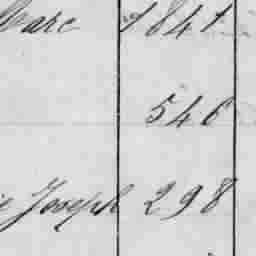 Marc 1841
546
Joseph 298